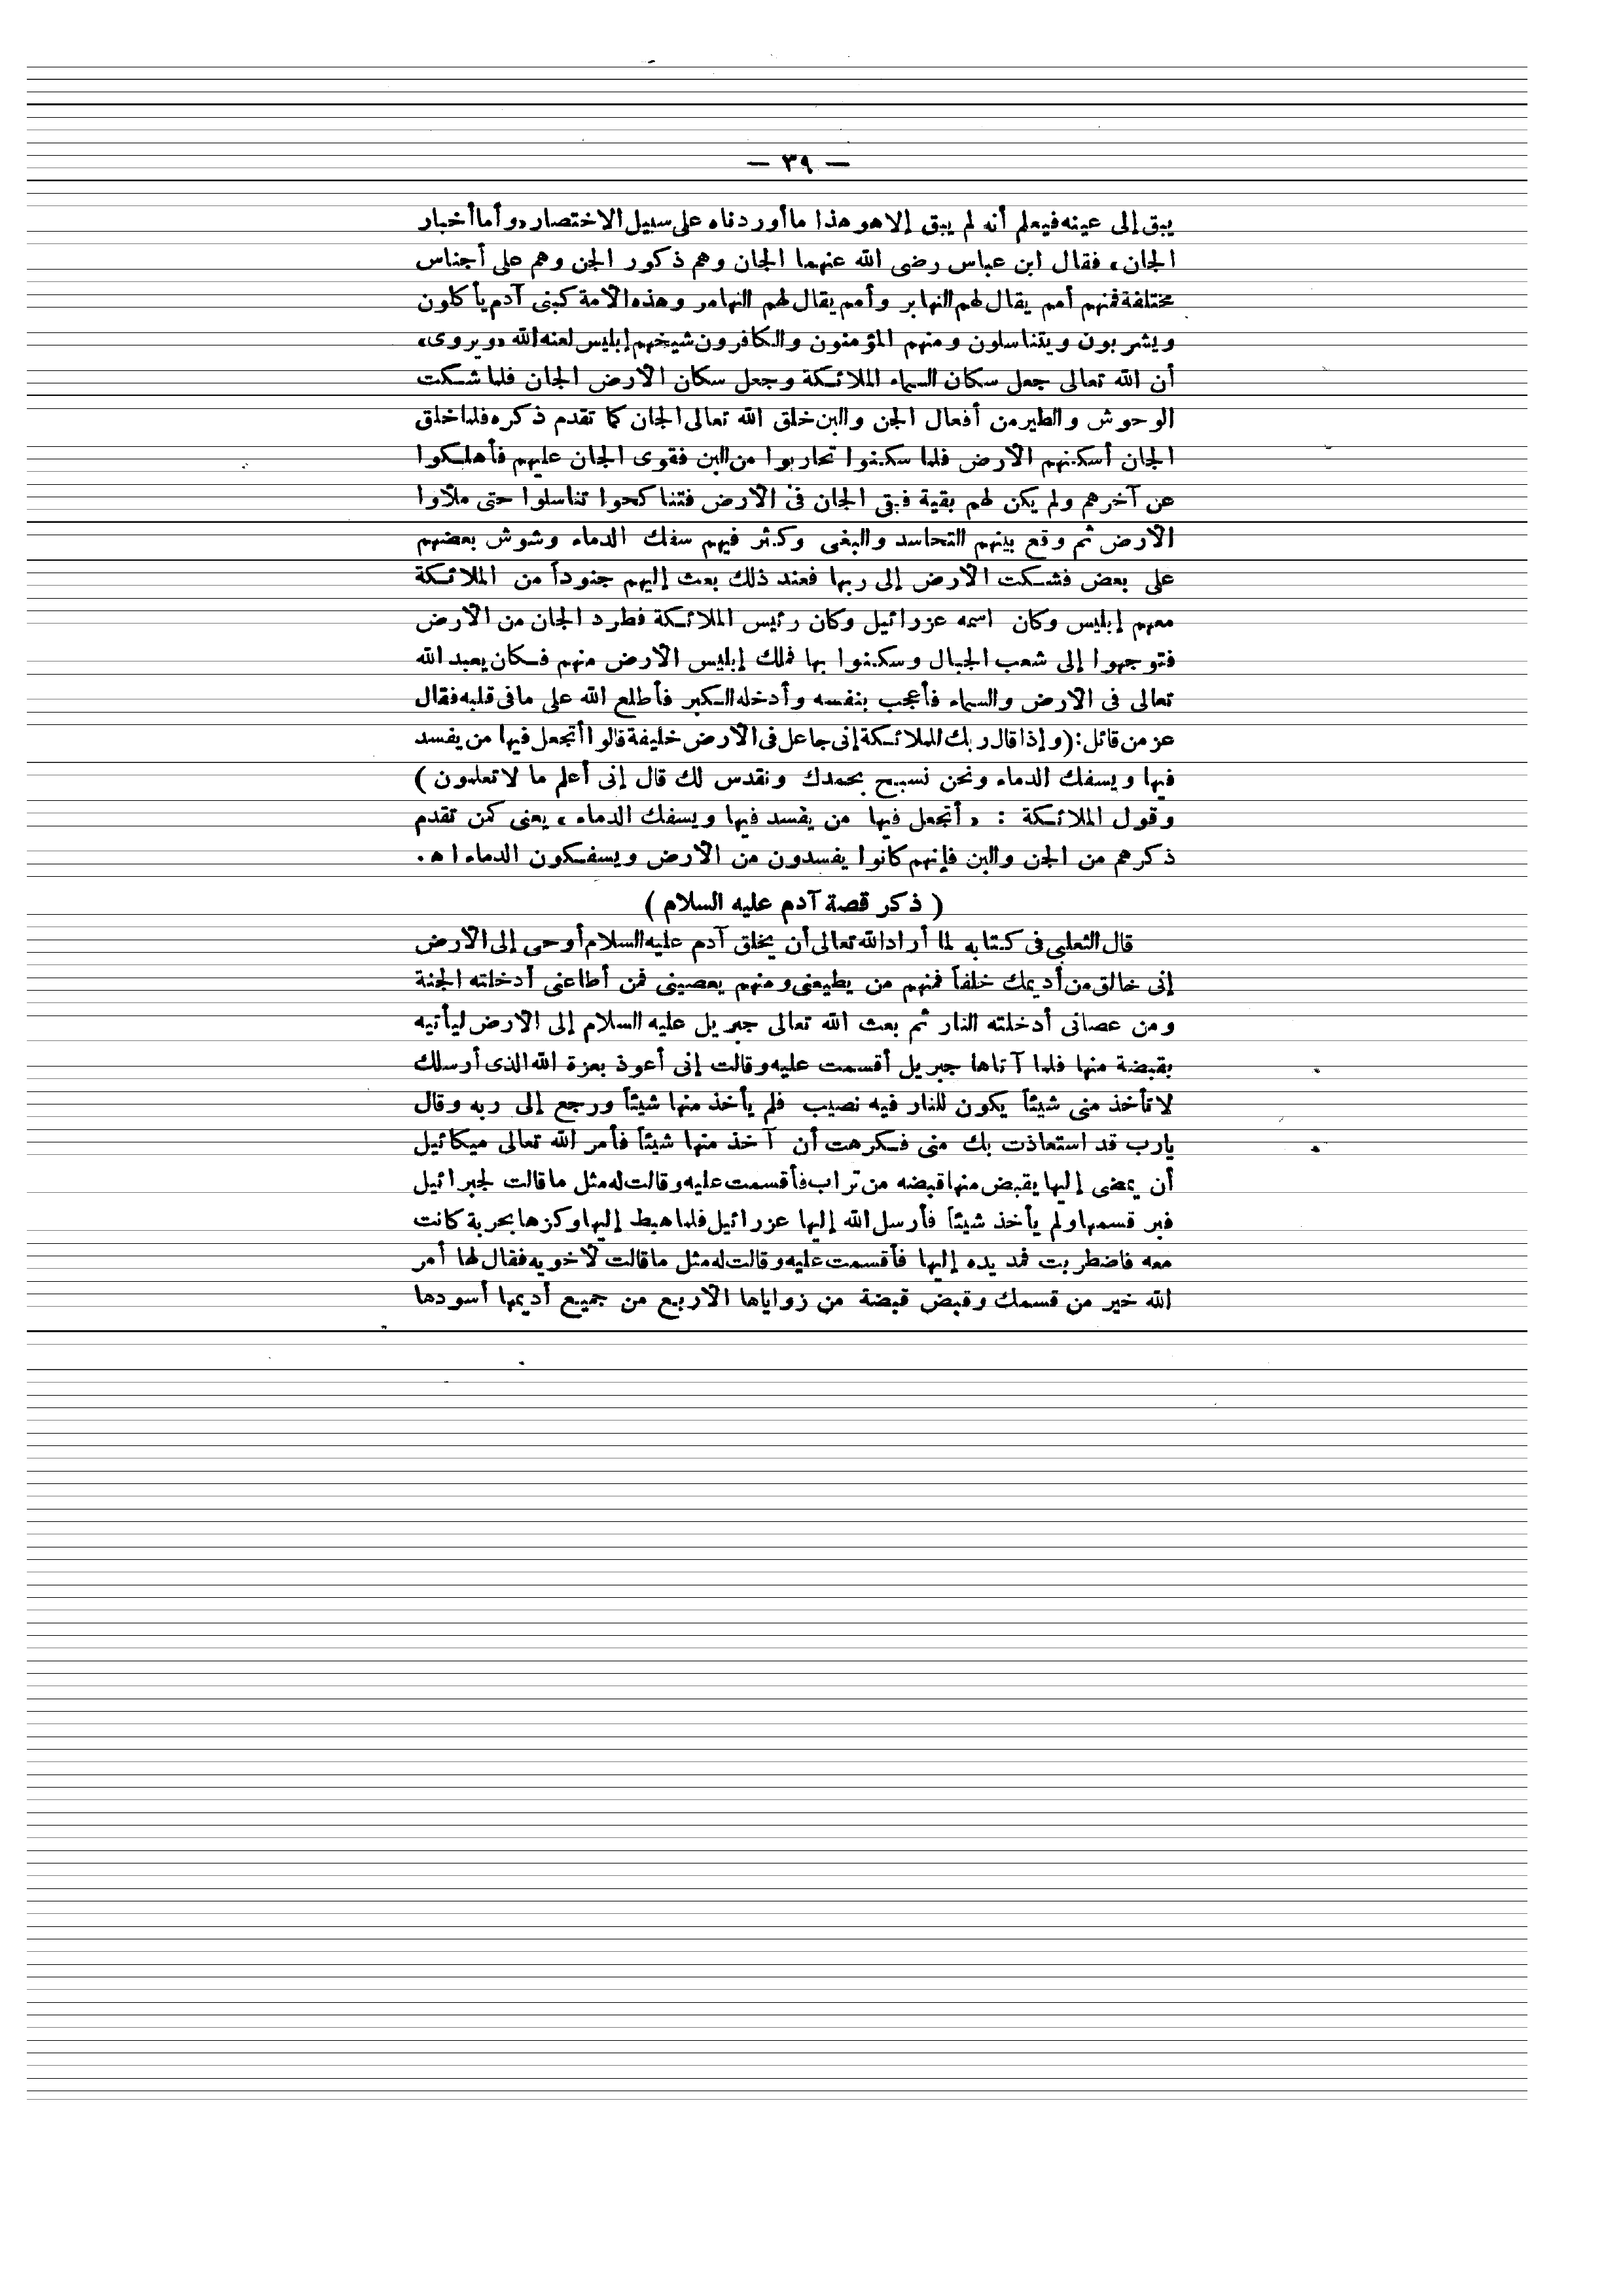 — ٣٩ —
يبق إلى عينه فيعلم أنه لم يبق إلا هو هذا ما أوردناه على سبيل الاختصار «وأما أخبار
الجان» فقال ابن عباس رضى الله عنهما الجان وهم ذكور الجن وهم على أجناس
مختلفة فمنهم أمم يقال لهم النهابر وأمم يقال لهم النهامر وهذه الامة كبنى آدم يأكلون
ويشربون ويتناسلون ومنهم المؤمنون والكافرون شيخهم إبليس لعنه الله «ويروى»
أن الله تعالى جعل سكان السماء الملائكة وجعل سكان الارض الجان فلما شكت
الوحوش والطير من أفعال الجن والبن خلق الله تعالى الجان كما تقدم ذكره فلما خلق
الجان أسكنهم الارض فلما سكنوا تحاربوا من البن فقوى الجان عليهم فأهلكوا
عن آخرهم ولم يكن لهم بقية فبقى الجان فى الارض فتناكحوا تناسلوا حتى ملأوا
الارض ثم وقع بينهم التحاسد والبغى وكثر فيهم سفك الدماء وشوش بعضهم
على بعض فشكت الارض إلى ربها فعند ذلك بعث إليهم جنوداً من الملائكة
معهم إبليس وكان اسمه عزرائيل وكان رئيس الملائكة فطرد الجان من الارض
فتوجهوا إلى شعب الجبال وسكنوا بها فملك إبليس الارض منهم فكان يعبد الله
تعالى فى الارض والسماء فأعجب بنفسه وأدخله الكبر فأطلع الله على ما فى قلبه فقال
عز من قائل: (وإذا قال ربك للملائكة إنى جاعل فى الارض خليفة قالوا أتجعل فيها من يفسد
فيها ويسفك الدماء ونحن نسبح بحمدك ونقدس لك قال إنى أعلم ما لا تعلمون)
وقول الملائكة : «أتجعل فيها من يفسد فيها ويسفك الدماء» يعنى كمن تقدم
ذكرهم من الجن والبن فإنهم كانوا يفسدون من الارض ويسفكون الدماء ا ه.
( ذكر قصة آدم عليه السلام )
قال الثعلبى فى كتابه لما أراد الله تعالى أن يخلق آدم عليه السلام أوحى إلى الارض
إنى خالق من أديمك خلقاً فمنهم من يطيعنى ومنهم يعصينى فمن أطاعنى أدخلته الجنة
ومن عصانى أدخلته النار ثم بعث الله تعالى جبريل عليه السلام إلى الارض ليأتيه
بقبضة منها فلما آتاها جبريل أقسمت عليه وقالت إنى أعوذ بعزة الله الذى أرسلك
لا تأخذ منى شيئاً يكون للنار فيه نصيب فلم يأخذ منها شيئاً ورجع إلى ربه وقال
يارب قد استعاذت بك منى فكرهت أن آخذ منها شيئاً فأمر الله تعالى ميكائيل
أن يمضى إليها يقبض منها قبضه من تراب فأقسمت عليه وقالت له مثل ما قالت لجبرائيل
فبر قسمها ولم يأخذ شيئاً فأرسل الله إليها عزرائيل فلما هبط إليها وكزها بحربة كانت
معه فاضطربت فمد يده إليها فأقسمت عليه وقالت له مثل ما قالت لأخويه فقال لها أمر
الله خير من قسمك وقبض قبضة من زواياها الاربع من جميع أديمها أسودها